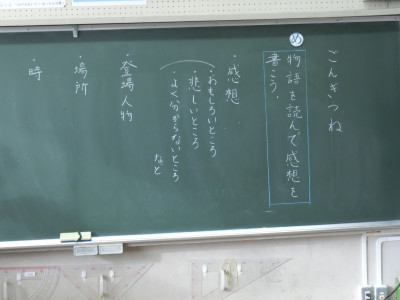 ごんぎつね
め
物語を読んで感想を
書こう。
・感想
・おもしろいところ
・悲しいところ
・よく分からないところ
など
・登場人物
・場所
・時